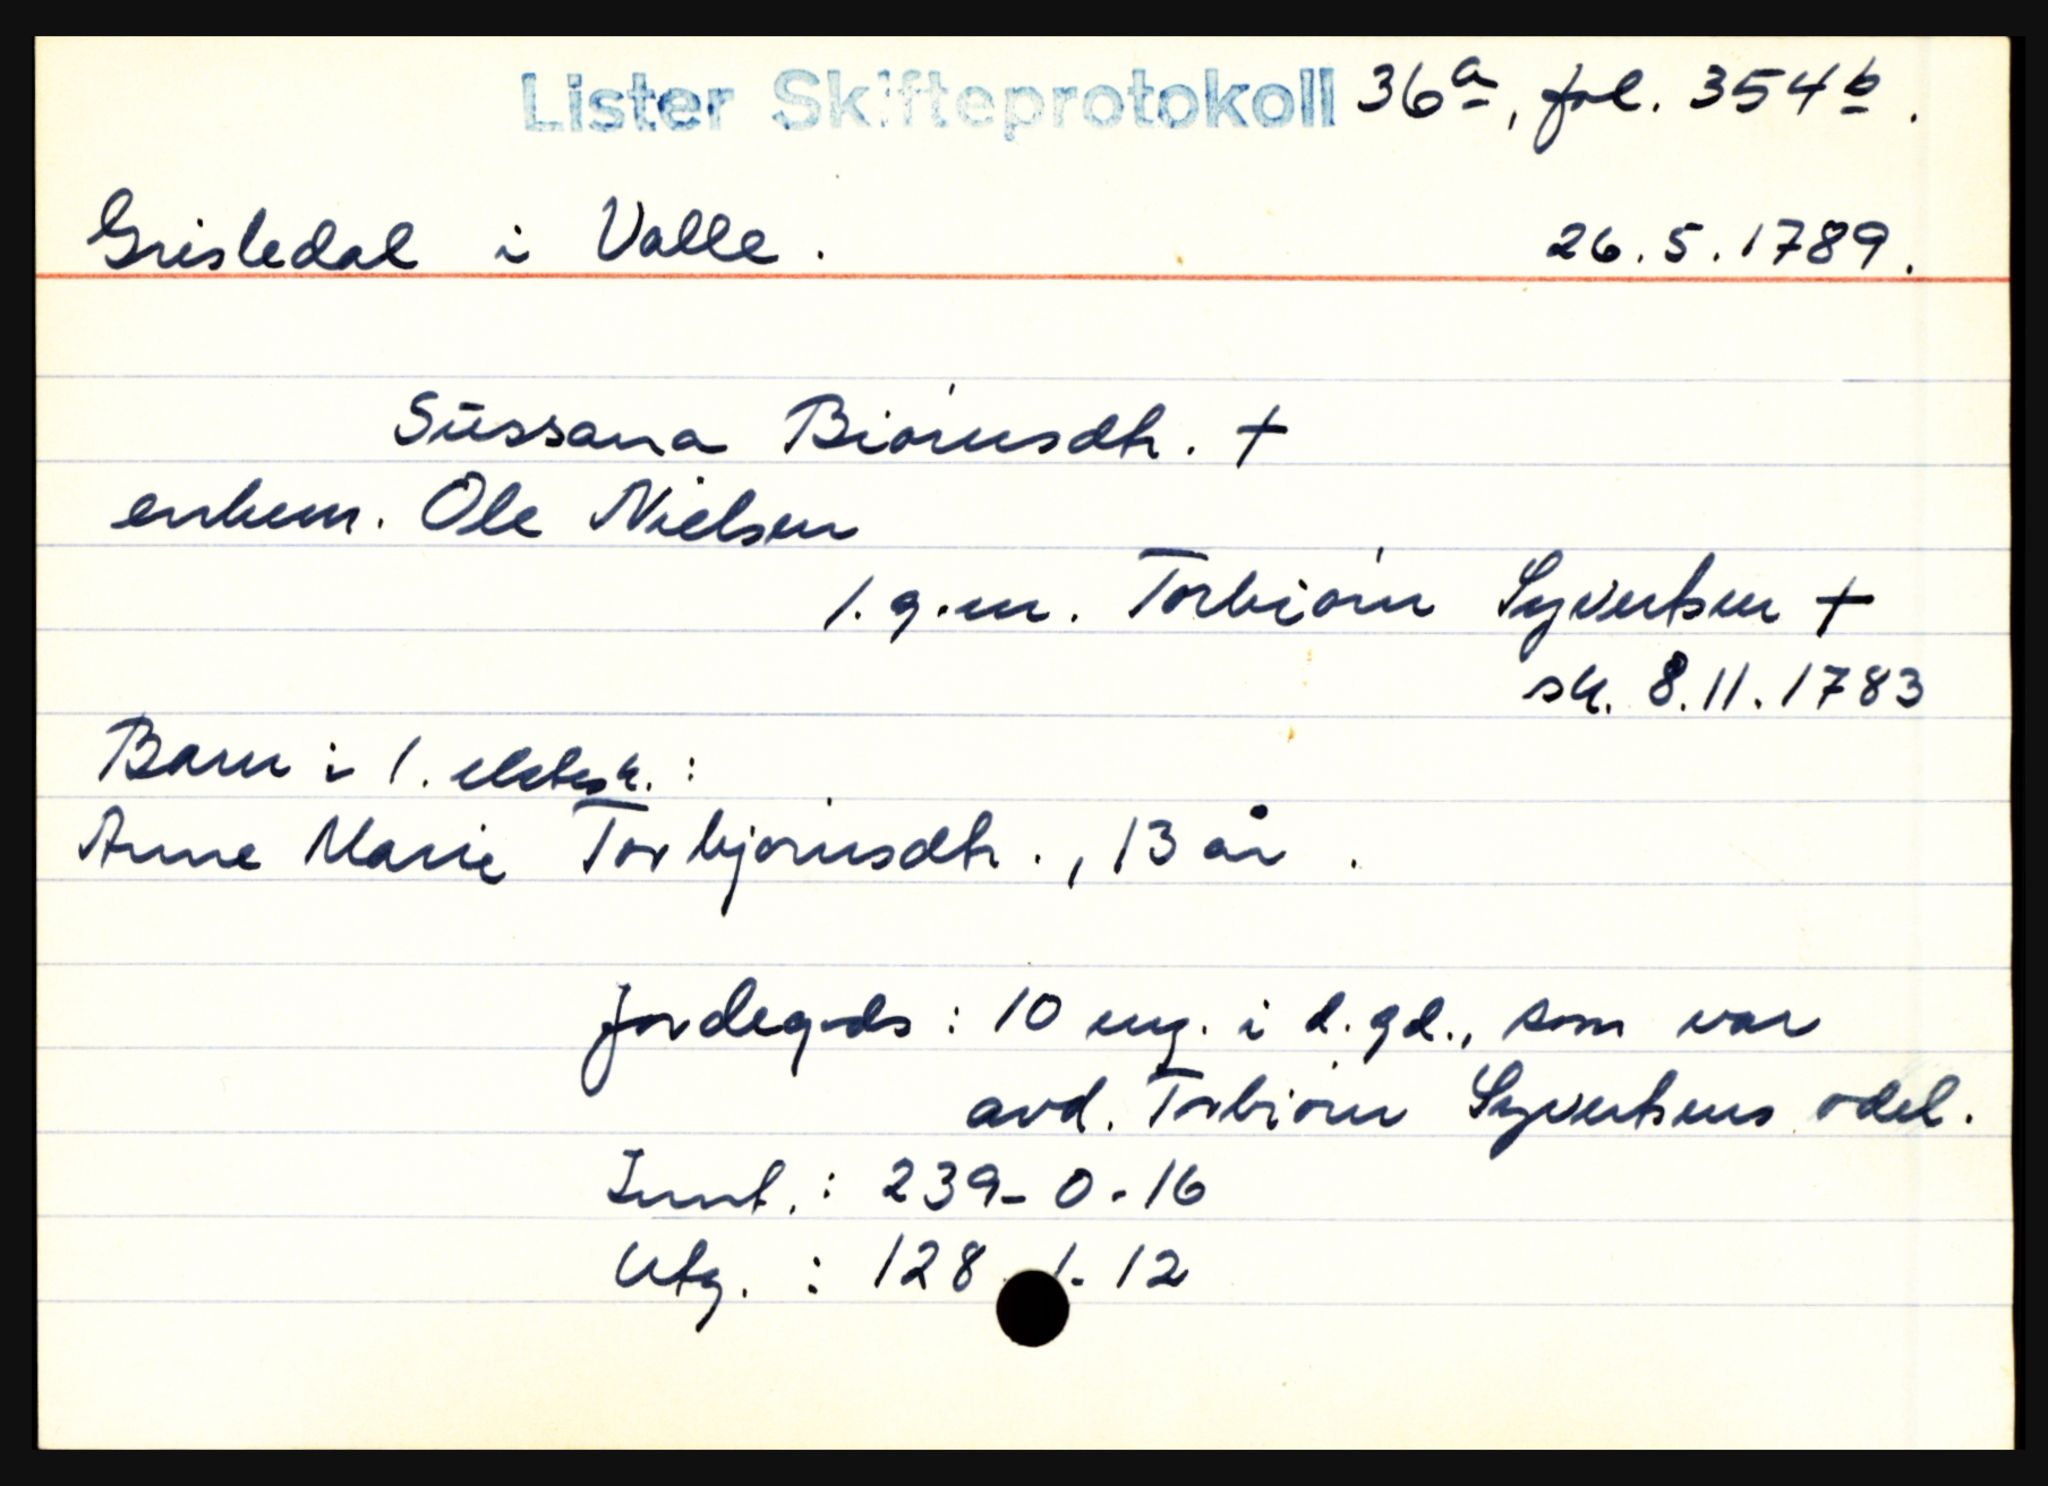 Lister Skifteprotokoll 36a, fol. 354b.
Grisledal i Valle. 26.5.1789.
Sussana Biørnsdtr. +
enkem. Ole Nielsen
1. g.m. Torbiørn Syvertsen +
sk. 8.11.1783
Barn i 1. ektesk.:
Anne Marie Torbjørnsdtr., 13 år.
Jordegods: 10 eng. i d. gd., som var
avd. Torbiørn Syvertsens odel.
Innt.: 239-0-16
Utg.: 128-1-12